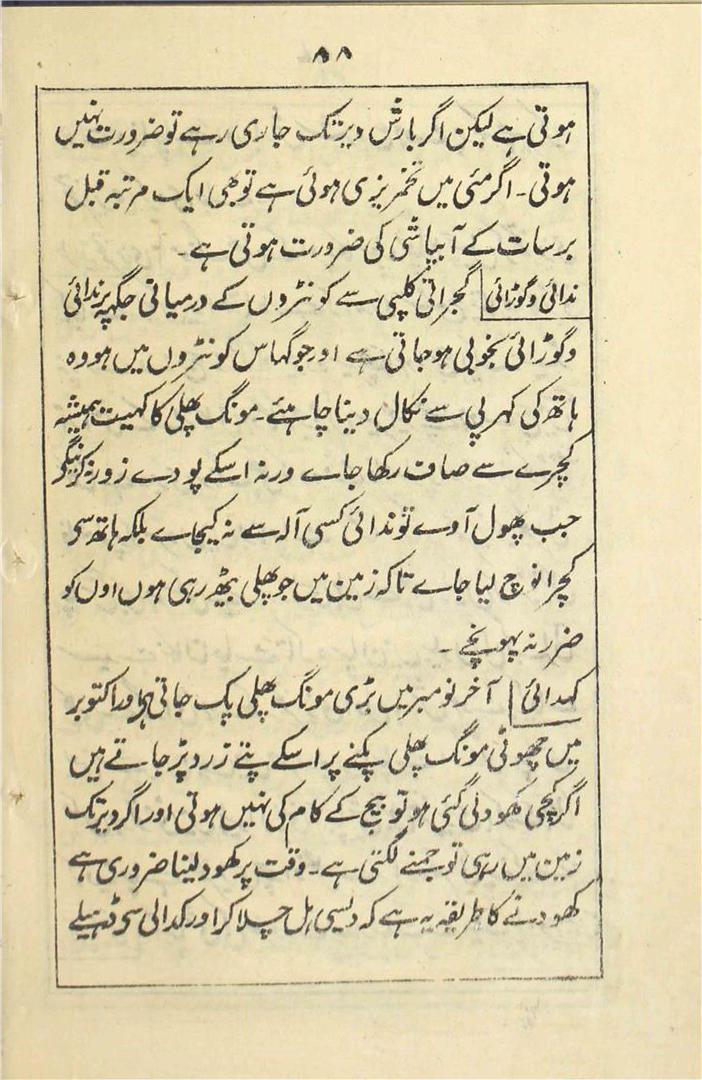 ۸۸
ہوتی ہے لیکن اگر بارش دیر تک جاری رہے تو ضرورت نہیں
ہوتی۔ اگر مئی میں تخمریزی ہوئی ہے تو بھی ایک مرتبہ قبل
برسات کے آبپاشی کی ضرورت ہوتی ہے۔
ندائی وگوڑائی گجراتی کلپی سے کونٹروں کے درمیانی جگہہ پر ندائی
وگوڑائی بخوبی ہوجاتی ہے اور جو گہاس کونٹروں میں ہو وہ
ہاتھ کی کہرپی سے نکال دینا چاہئے۔ مونگ پھلی کا کہیت ہمیشہ
کچرے سے صاف رکھا جاے ورنہ اسکے پودے زور نہ کرینگے
جب پھول آوے تو ندائی کسی آلہ سے نہ کیجاے بلکہ ہاتھ سی
کچرا نوچ لیا جاے تاکہ زمین میں جو پھلی بیٹھ رہی ہوں اوں کو
ضرر نہ پہونچے۔
کہدائی آخر نومبر میں بڑی مونگ پھلی پک جاتی ہے اور اکتوبر
میں چھوٹی مونگ پھلی پکنے پر اسکے پتے زرد پڑ جاتے ہیں
اگر کچی کھود لی گئی ہو تو بیج کے کام کی نہیں ہوتی اور اگر دیر تک
زمین میں رہی تو جمنے لگتی ہے۔ وقت پر کھود لینا ضروری ہے
کھودنے کا طریقہ یہ ہے کہ دیسی ہل چلا کر اور کدالی سی ڈہیلے